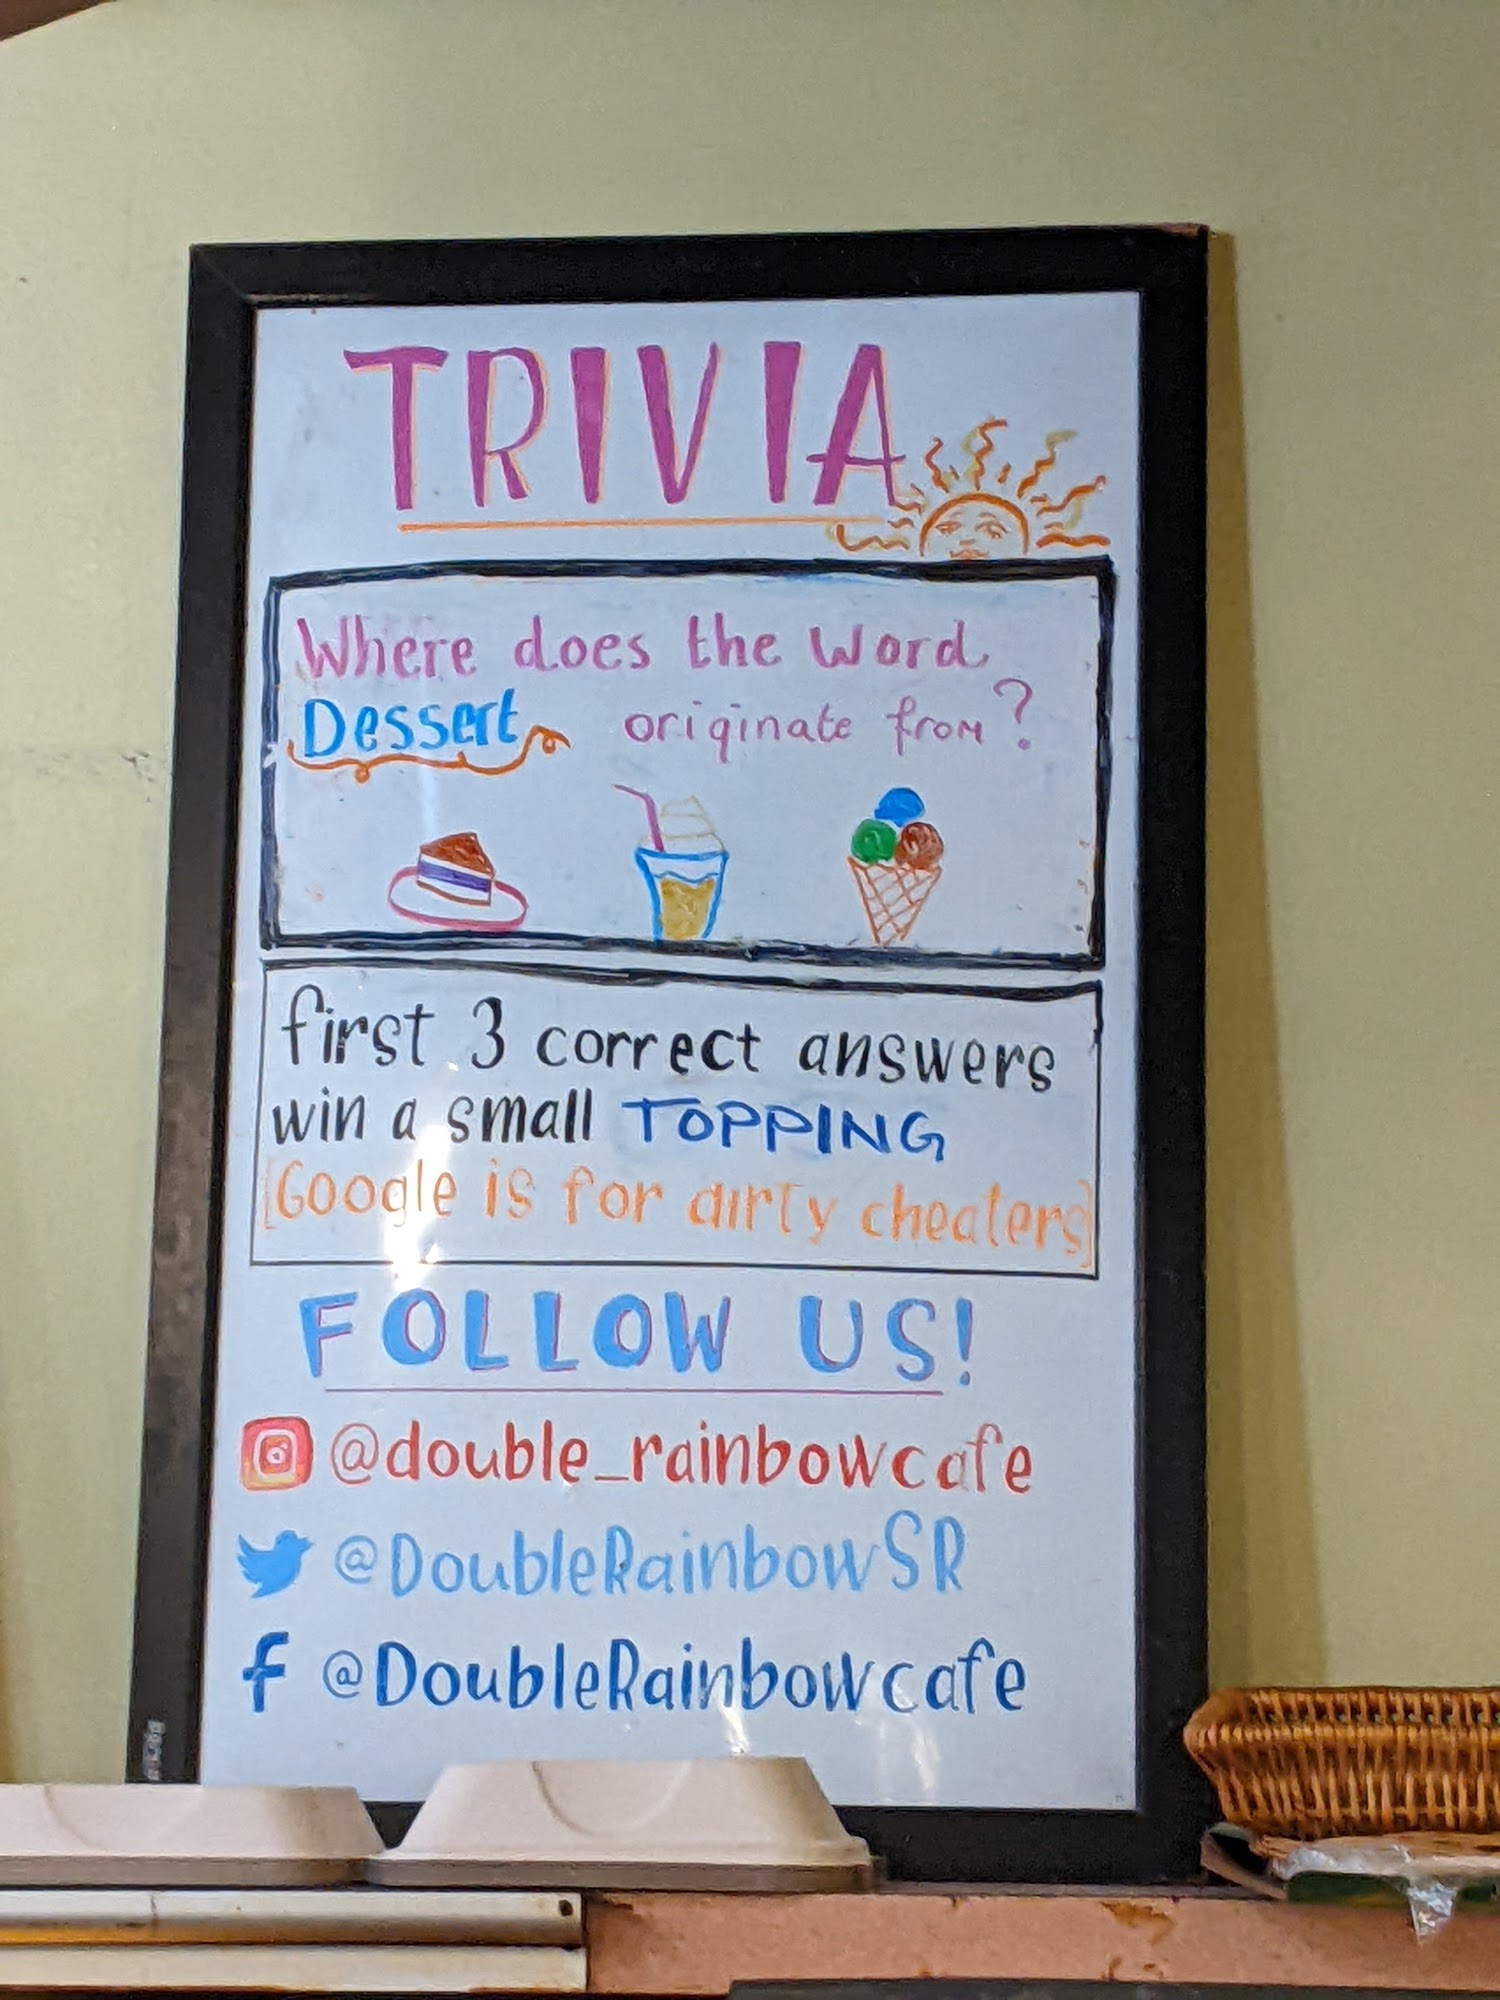 TRIVIA
Where does the Word
Dessert originate from?
first 3 correct answers
win a small TOPPING
[Google is for dirty cheaters]
FOLLOW US!
@double_rainbowcafe
@DoubleRainbowSR
f @DoubleRainbowcafe